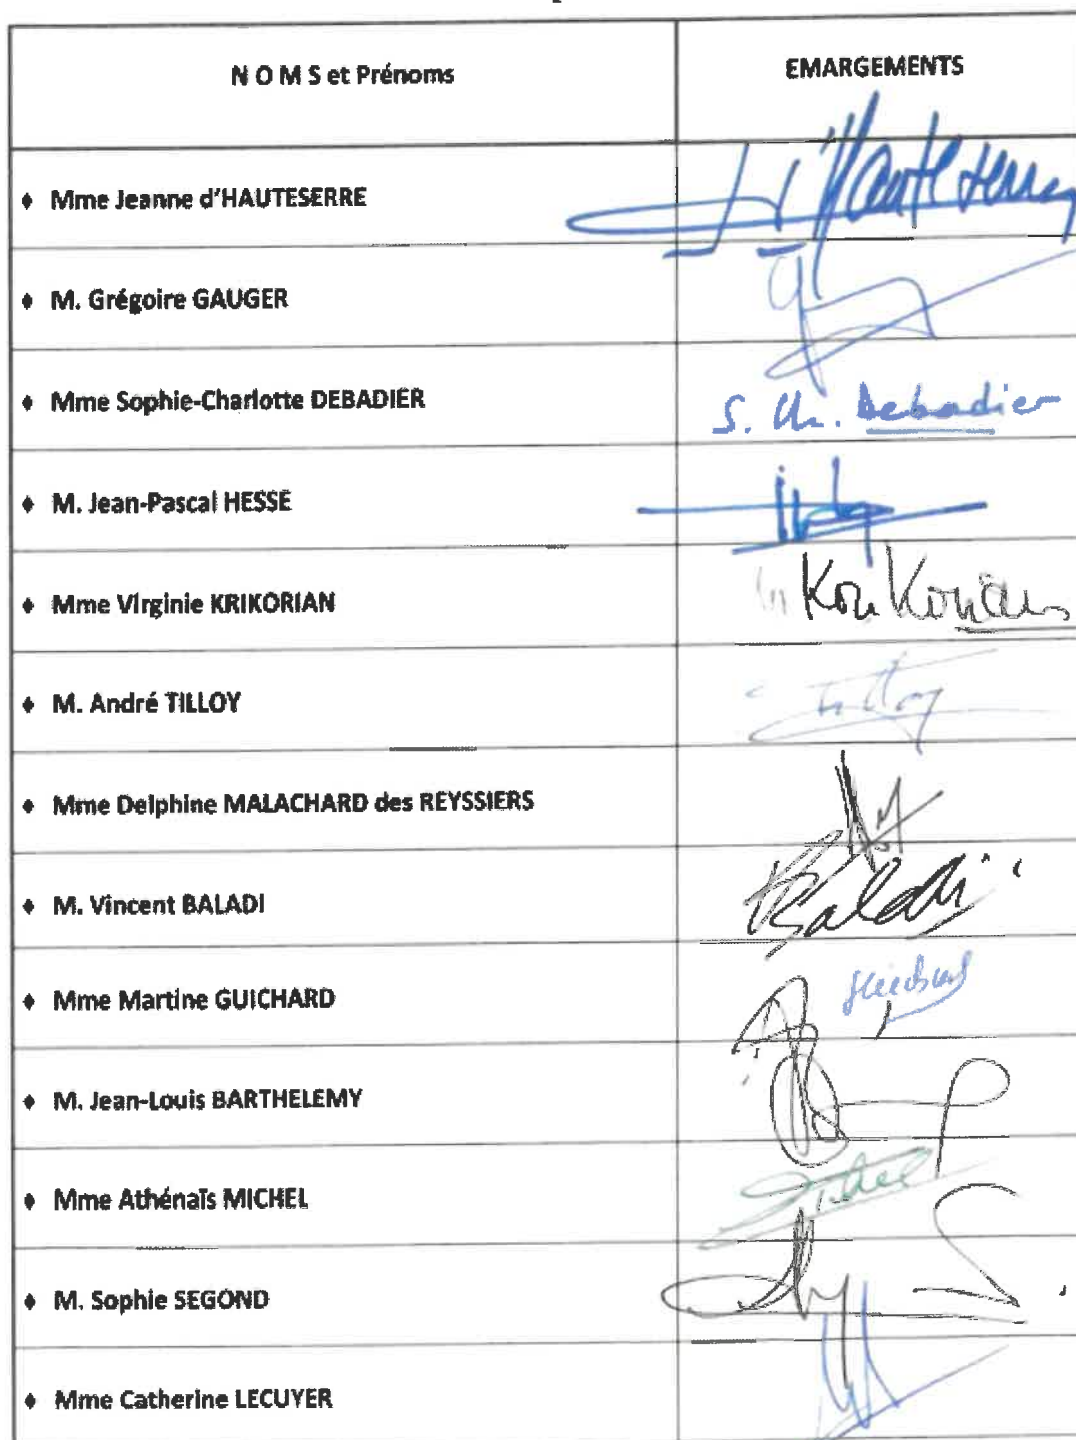 N O M S et Prénoms EMARGEMENTS
♦ Mme Jeanne d'HAUTESERRE d'Hauteserre
♦ M. Grégoire GAUGER
♦ Mme Sophie-Charlotte DEBADIER S. Ch. Debadier
♦ M. Jean-Pascal HESSE
♦ Mme Virginie KRIKORIAN
♦ M. André TILLOY Tilloy
♦ Mme Delphine MALACHARD des REYSSIERS
♦ M. Vincent BALADI Baladi
♦ Mme Martine GUICHARD Guichard
♦ M. Jean-Louis BARTHELEMY
♦ Mme Athénaïs MICHEL
♦ M. Sophie SEGOND
♦ Mme Catherine LECUYER